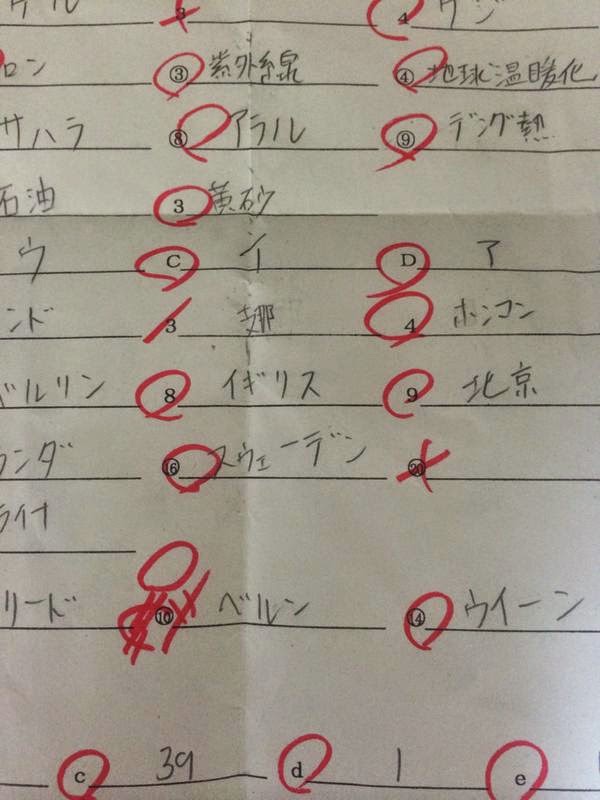 3 4
ロン ③ 紫外線 ④ 地球温暖化
サハラ ⑧ アラル ⑨ デング熱
石油 3 黄砂
ウ C イ D ア
ンド 3 4 ホンコン
ベルリン 8 イギリス 9 北京
ランダ ⑯ スウェーデン ⑳
ライナ
リード ⑩ ベルン ⑭ ウイーン
c 39 d 1 e